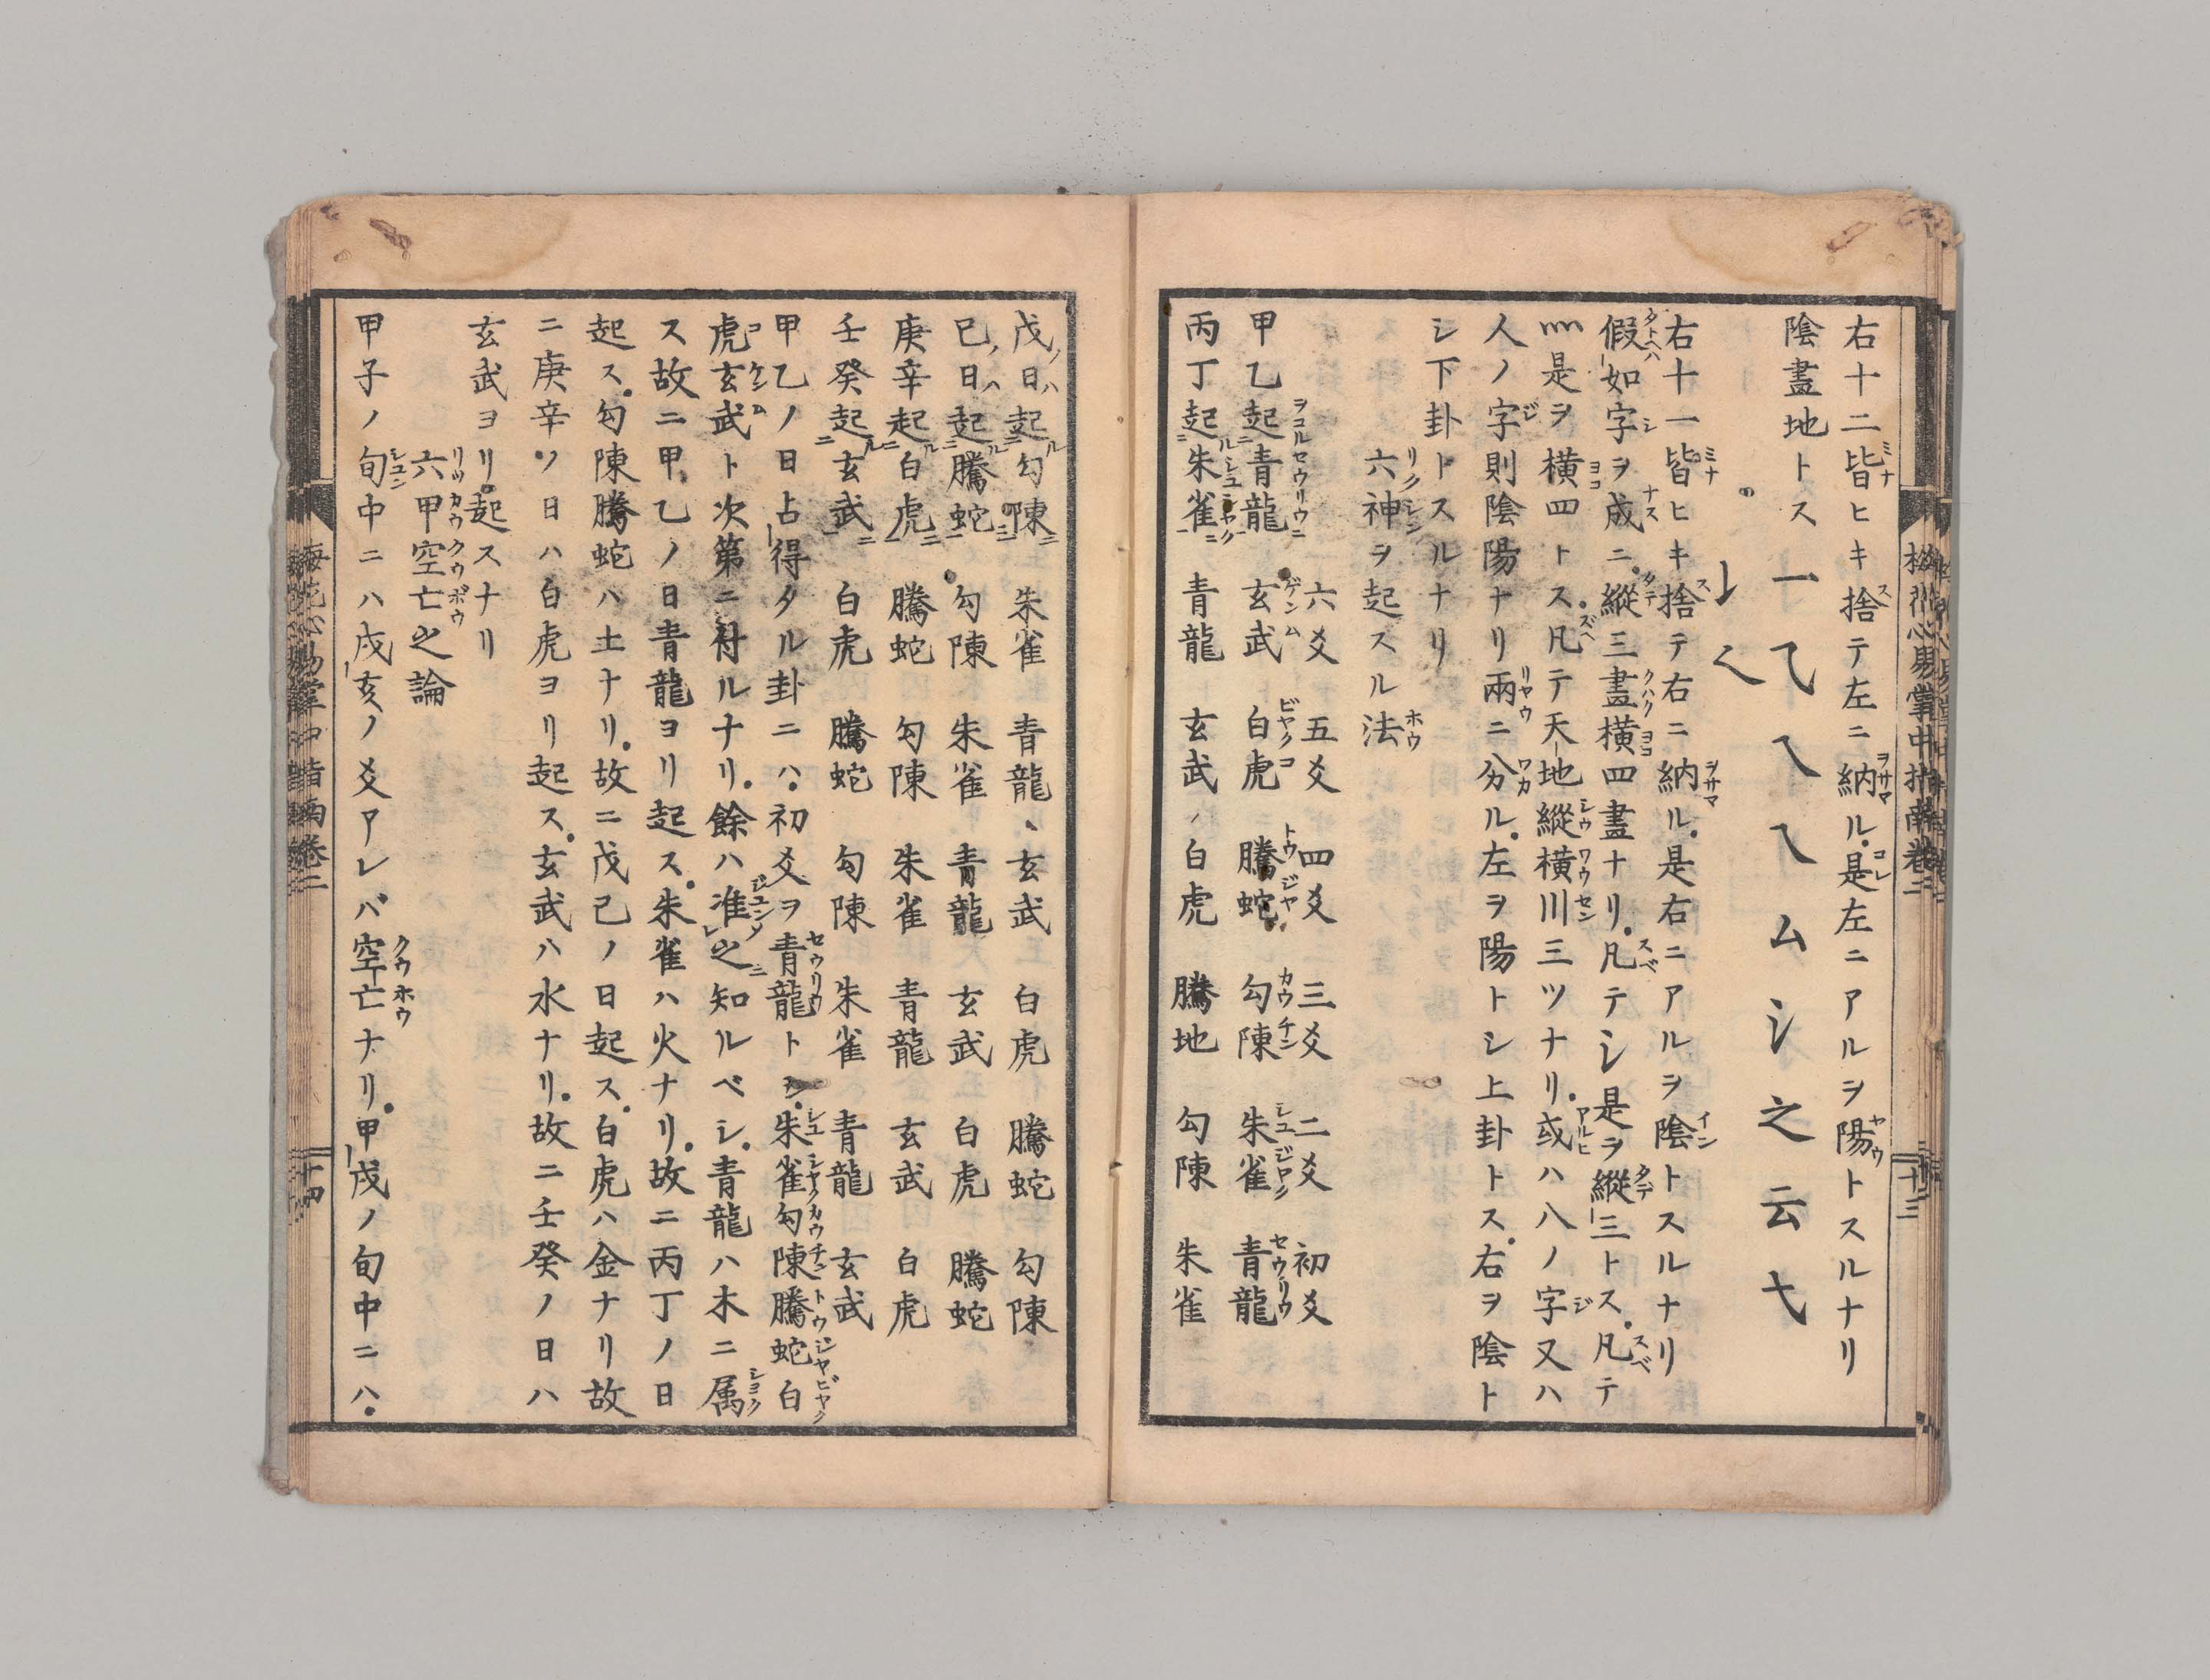 右十二皆ヒキ捨テ左ニ納ル是左ニアルヲ陽トスルナリ
陰畫地トス
右十一皆ヒキ捨テ右ニ納ル是右ニアルヲ陰トスルナリ
假如字ヲ成ニ縱三畫横四畫ナリ凡テ氵是ヲ縱三トス凡テ
灬是ヲ横四トス凡テ天地縱横川三ツナリ或ハ八ノ字又ハ
人ノ字則陰陽ナリ兩ニ分ル左ヲ陽トシ上卦トス右ヲ陰ト
シ下卦トスルナリ
六神ヲ起スル法
六爻 五爻 四爻 三爻 二爻 初爻
甲乙起青龍 玄武 白虎 騰蛇 勾陳 朱雀 青龍
丙丁起朱雀 青龍 玄武 白虎 騰地 勾陳 朱雀
戊日起勾陳 朱雀 青龍 玄武 白虎 騰蛇 勾陳
己日起騰蛇 勾陳 朱雀 青龍 玄武 白虎 騰蛇
庚辛起白虎 騰蛇 勾陳 朱雀 青龍 玄武 白虎
壬癸起玄武 白虎 騰蛇 勾陳 朱雀 青龍 玄武
甲乙ノ日占得タル卦ニハ初爻ヲ青龍トシ朱雀勾陳騰蛇白
虎玄武ト次第ニ付ルナリ餘ハ准之知ルベシ青龍ハ木ニ属
ス故ニ甲乙ノ日青龍ヨリ起ス朱雀ハ火ナリ故ニ丙丁ノ日
起ス勾陳騰蛇ハ土ナリ故ニ戊己ノ日起ス白虎ハ金ナリ故
ニ庚辛ノ日ハ白虎ヨリ起ス玄武ハ水ナリ故ニ壬癸ノ日ハ
玄武ヨリ起スナリ
六甲空亡之論
甲子ノ旬中ニハ戌亥ノ爻アレバ空亡ナリ甲戌ノ旬中ニハ
十四